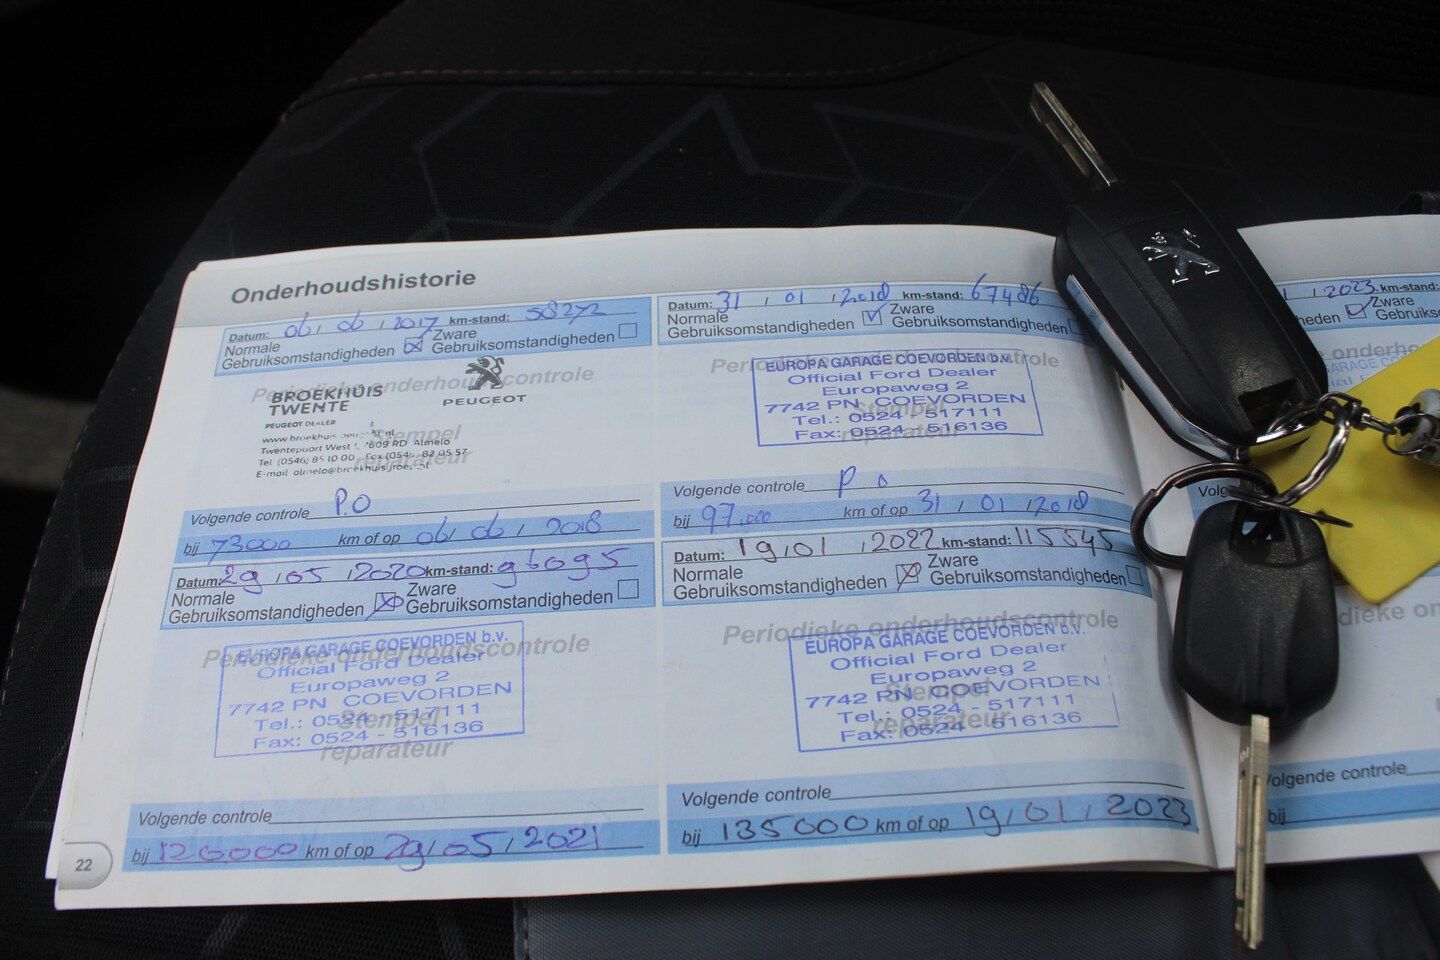 Onderhoudshistorie
Datum: 06 / 06 / 2017 km-stand: 58272
Normale
Gebruiksomstandigheden
Zware
Gebruiksomstandigheden
Periodieke onderhoudscontrole
BROEKHUIS
TWENTE
PEUGEOT DEALER
PEUGEOT
Stempel
reparateur
Volgende controle P.O
bij 73000 km of op 06 / 06 / 2018
Datum: 31 / 01 / 2018 km-stand: 67486
Normale
Gebruiksomstandigheden
Zware
Gebruiksomstandigheden
Periodieke onderhoudscontrole
EUROPA GARAGE COEVORDEN b.v.
Official Ford Dealer
Europaweg 2
7742 PN COEVORDEN
Tel.: 0524 - 517111
Fax: 0524 - 516136
Stempel
reparateur
Volgende controle P O
bij 97.000 km of op 31 / 01 / 2018
Datum: 29 / 05 / 2020 km-stand: 96095
Normale
Gebruiksomstandigheden
Zware
Gebruiksomstandigheden
Periodieke onderhoudscontrole
EUROPA GARAGE COEVORDEN b.v.
Official Ford Dealer
Europaweg 2
7742 PN COEVORDEN
Tel.: 0524 - 517111
Fax: 0524 - 516136
Stempel
reparateur
Volgende controle
bij 120.000 km of op 29 / 05 / 2021
Datum: 19 / 01 / 2022 km-stand: 115545
Normale
Gebruiksomstandigheden
Zware
Gebruiksomstandigheden
Periodieke onderhoudscontrole
EUROPA GARAGE COEVORDEN b.v.
Official Ford Dealer
Europaweg 2
7742 PN COEVORDEN
Tel.: 0524 - 517111
Fax: 0524 - 516136
Stempel
reparateur
Volgende controle
bij 135000 km of op 19 / 01 / 2023
22
2023 km-stand:
Zware
Gebruiksomstandigheden
Volgende controle
bij